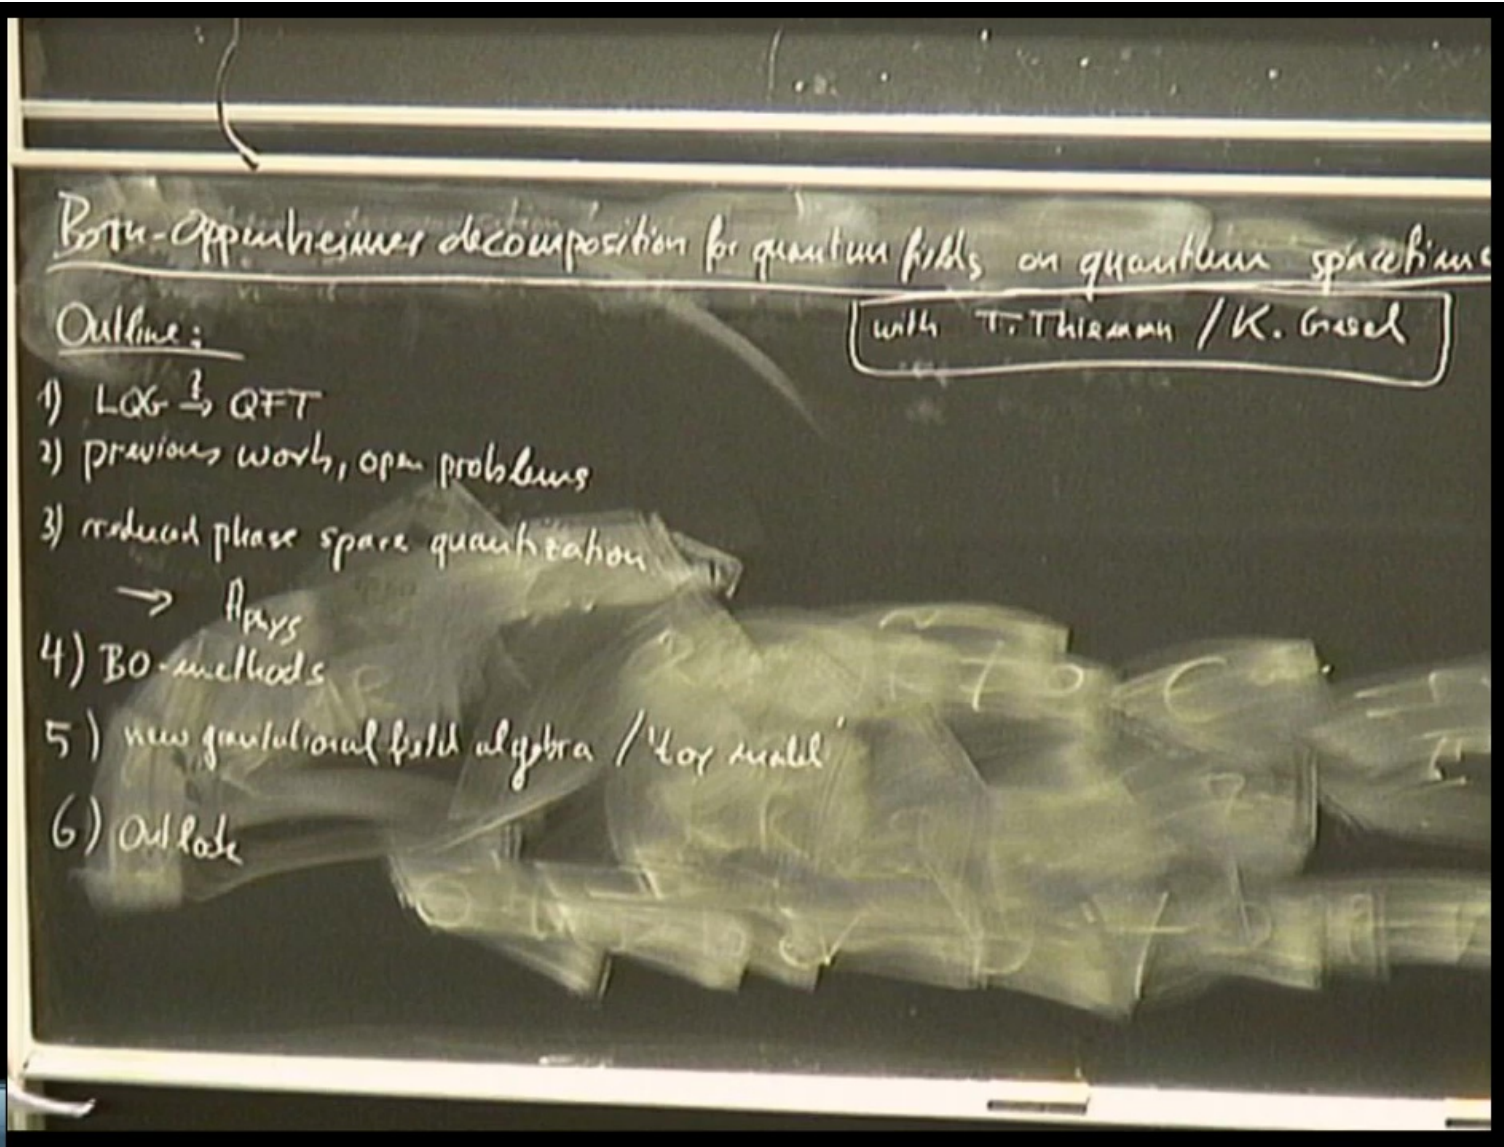 Born-Oppenheimer decomposition for quantum fields on quantum spacetime
with T. Thiemann / K. Giesel
Outline:
1) LQG ?→ QFT
2) previous work, open problems
3) reduced phase space quantization
→ Aphys
4) BO-methods
5) new gravitational field algebra / "toy model"
6) Outlook